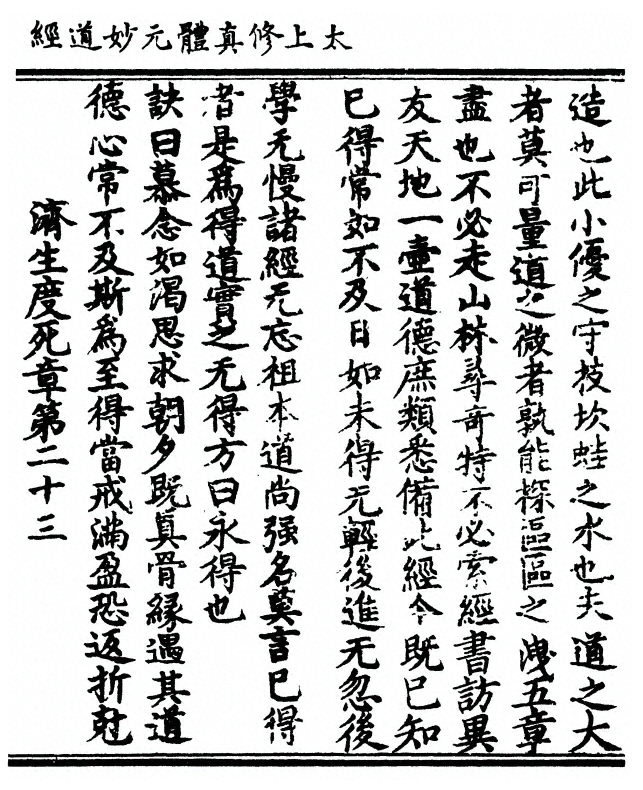 太上修真體元妙道經
造也此小優之守技坎蛙之水也夫道之大
者莫可量道之微者孰能探區區之洩五章
盡也不必走山林尋奇特不必索經書訪異
友天地一壷道德庶類悉備此經今既已知
已得常如不及日如未得无輕後進无忽後
學无慢諸經无忘祖本道尚强名莫言已得
者是為得道實之无得方曰永得也
訣曰慕念如渴思求朝夕既真骨緣遇其道
德心常不及斯為至得當戒滿盈恐返折尅
濟生度死章第二十三